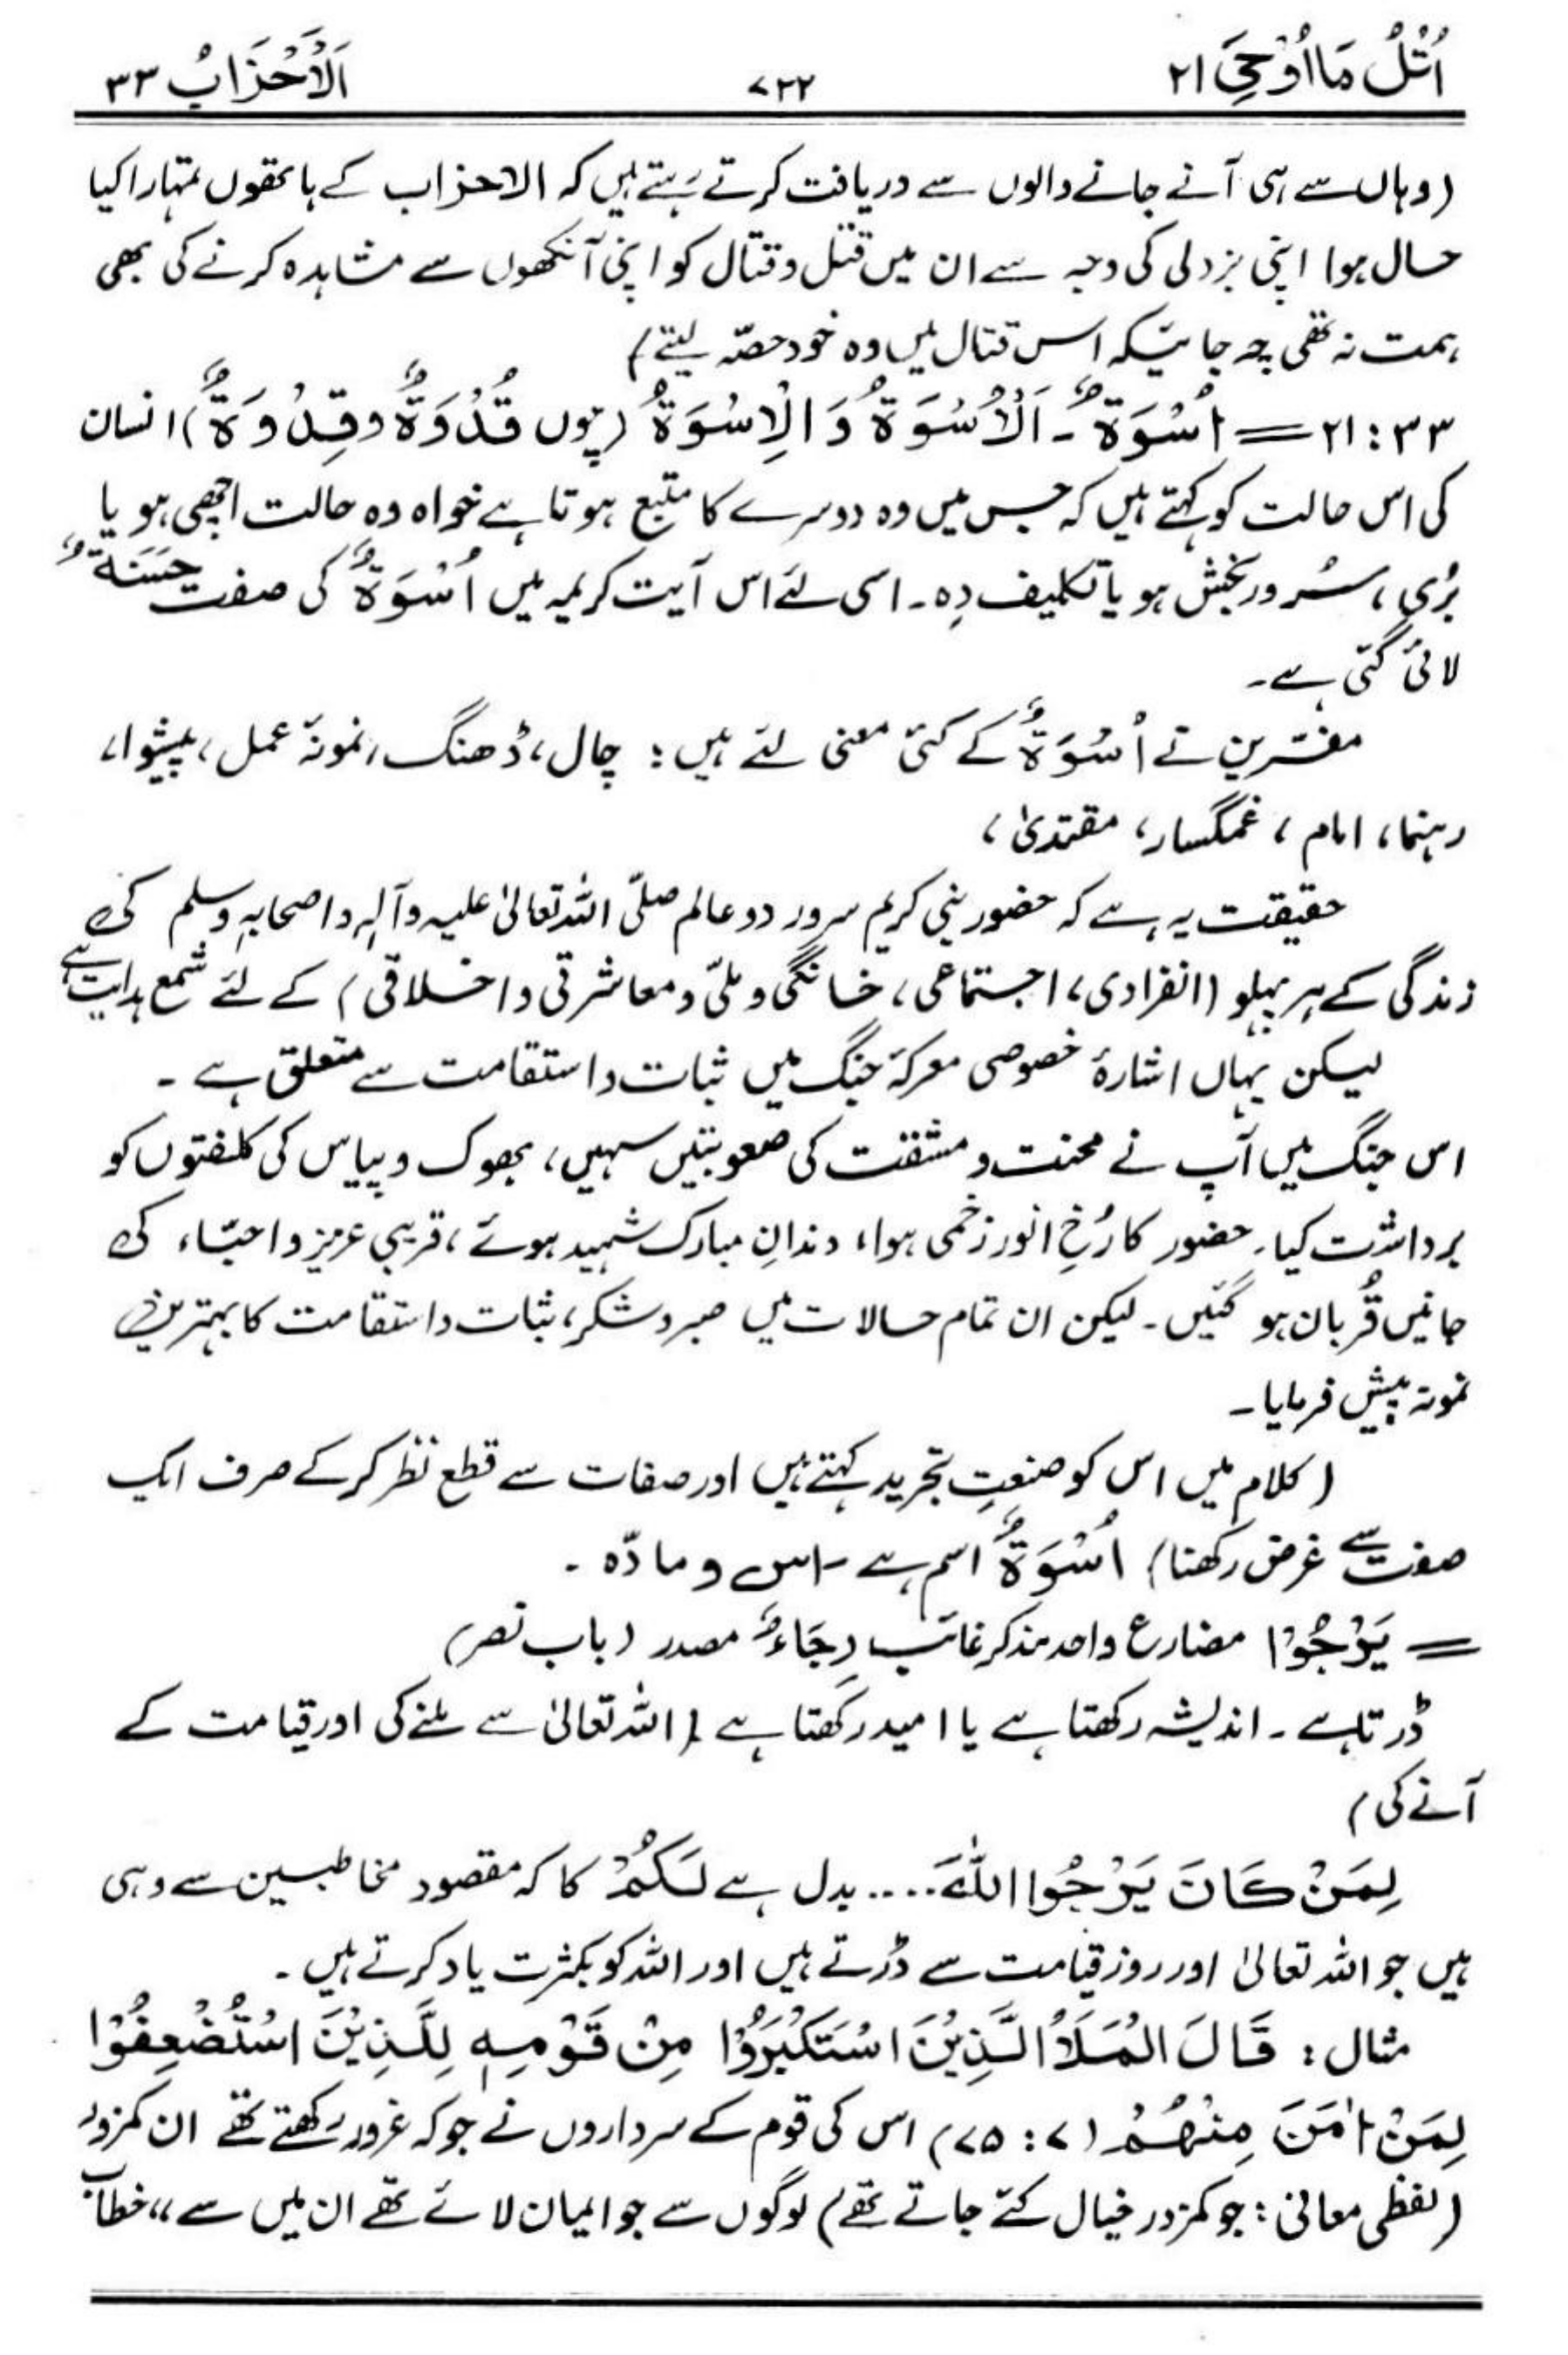 اُتْلُ مَا اُوْحِیَ ۲۱ ۷۲۲ اَلْاَحْزَابُ ۳۳
(وہاں سے ہی آنے جانے والوں سے دریافت کرتے رہتے ہیں کہ الاحزاب کے ہاتھوں تمہارا کیا
حال ہوا اپنی بزدلی کی وجہ سے ان میں قتل و قتال کو اپنی آنکھوں سے مشاہدہ کرنے کی بھی
ہمت نہ تھی چہ جائیکہ اس قتال میں وہ خود حصّہ لیتے)
۳۳ : ۲۱ = اُسْوَةٌ ۔ اَلْاُسْوَةُ وَ الْاِسْوَةُ (چوں قُدْوَةٌ و قِدْوَةٌ) انسان
کی اس حالت کو کہتے ہیں کہ جس میں وہ دوسرے کا متبع ہوتا ہے خواہ وہ حالت اچھی ہو یا
بُری، سُرور بخش ہو یا تکلیف دِہ ۔ اسی لئے اس آیت کریمہ میں اُسْوَةٌ کی صفت حَسَنَةٌ
لائی گئی ہے۔
مفسّرین نے اُسْوَةٌ کے کئی معنی لئے ہیں : چال، ڈھنگ، نمونۂ عمل، پیشوا،
رہنما، امام، غمگسار، مقتدیٰ،
حقیقت یہ ہے کہ حضور نبی کریم سرور دو عالم صلّی اللہ تعالیٰ علیہ وآلہٖ واصحابہٖ وسلم کی
زندگی کے ہر پہلو (انفرادی، اجتماعی، خانگی و ملّی و معاشرتی و اخلاقی) کے لئے شمع ہدایت ہے
لیکن یہاں اشارۂ خصوصی معرکۂ جنگ میں ثبات و استقامت سے متعلق ہے ۔
اس جنگ میں آپ نے محنت و مشقت کی صعوبتیں سہیں، بھوک و پیاس کی کلفتوں کو
برداشت کیا ۔ حضور کا رُخِ انور زخمی ہوا، دندانِ مبارک شہید ہوئے، قریبی عزیز و احبّاء کی
جانیں قُربان ہو گئیں ۔ لیکن ان تمام حالات میں صبر و شکر، ثبات و استقامت کا بہترین
نمونہ پیش فرمایا ۔
(کلام میں اس کو صنعتِ تجرید کہتے ہیں اور صفات سے قطع نظر کر کے صرف ایک
صفت سے غرض رکھنا) اُسْوَةٌ اسم ہے ۔ اس و مادّہ ۔
= یَرْجُوْا مضارع واحد مذکر غائب رِجَاءٌ مصدر (باب نصر)
ڈرتا ہے ۔ اندیشہ رکھتا ہے یا امید رکھتا ہے (اللہ تعالیٰ سے ملنے کی اور قیامت کے
آنے کی)
لِمَنْ کَانَ یَرْجُوا اللّٰہَ.... بدل ہے لَکُمْ کا کہ مقصود مخاطبین سے وہی
ہیں جو اللہ تعالیٰ اور روز قیامت سے ڈرتے ہیں اور اللہ کو بکثرت یاد کرتے ہیں ۔
مثال : قَالَ الْمَلَاُ الَّذِیْنَ اسْتَکْبَرُوْا مِنْ قَوْمِہٖ لِلَّذِیْنَ اسْتُضْعِفُوْا
لِمَنْ اٰمَنَ مِنْھُمْ (۷ : ۷۵) اس کی قوم کے سرداروں نے جو کہ غرور رکھتے تھے ان کمزور
(لفظی معانی : جو کمزور خیال کئے جاتے تھے) لوگوں سے جو ایمان لائے تھے ان میں سے،، خطاب